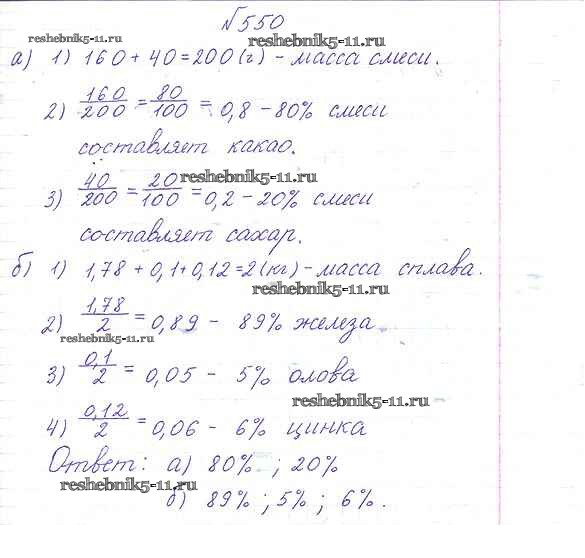 №550
reshebnik5-11.ru reshebnik5-11.ru
а) 1) 160 + 40 = 200 (г) - масса смеси.
2) 160/200 = 80/100 = 0,8 - 80% смеси
составляет какао.
reshebnik5-11.ru
3) 40/200 = 20/100 = 0,2 - 20% смеси
составляет сахар.
б) 1) 1,78 + 0,1 + 0,12 = 2 (кг) - масса сплава.
reshebnik5-11.ru
2) 1,78/2 = 0,89 - 89% железа
reshebnik5-11.ru
3) 0,1/2 = 0,05 - 5% олова
reshebnik5-11.ru
4) 0,12/2 = 0,06 - 6% цинка
Ответ: а) 80% ; 20%
reshebnik5-11.ru
б) 89% ; 5% ; 6%.